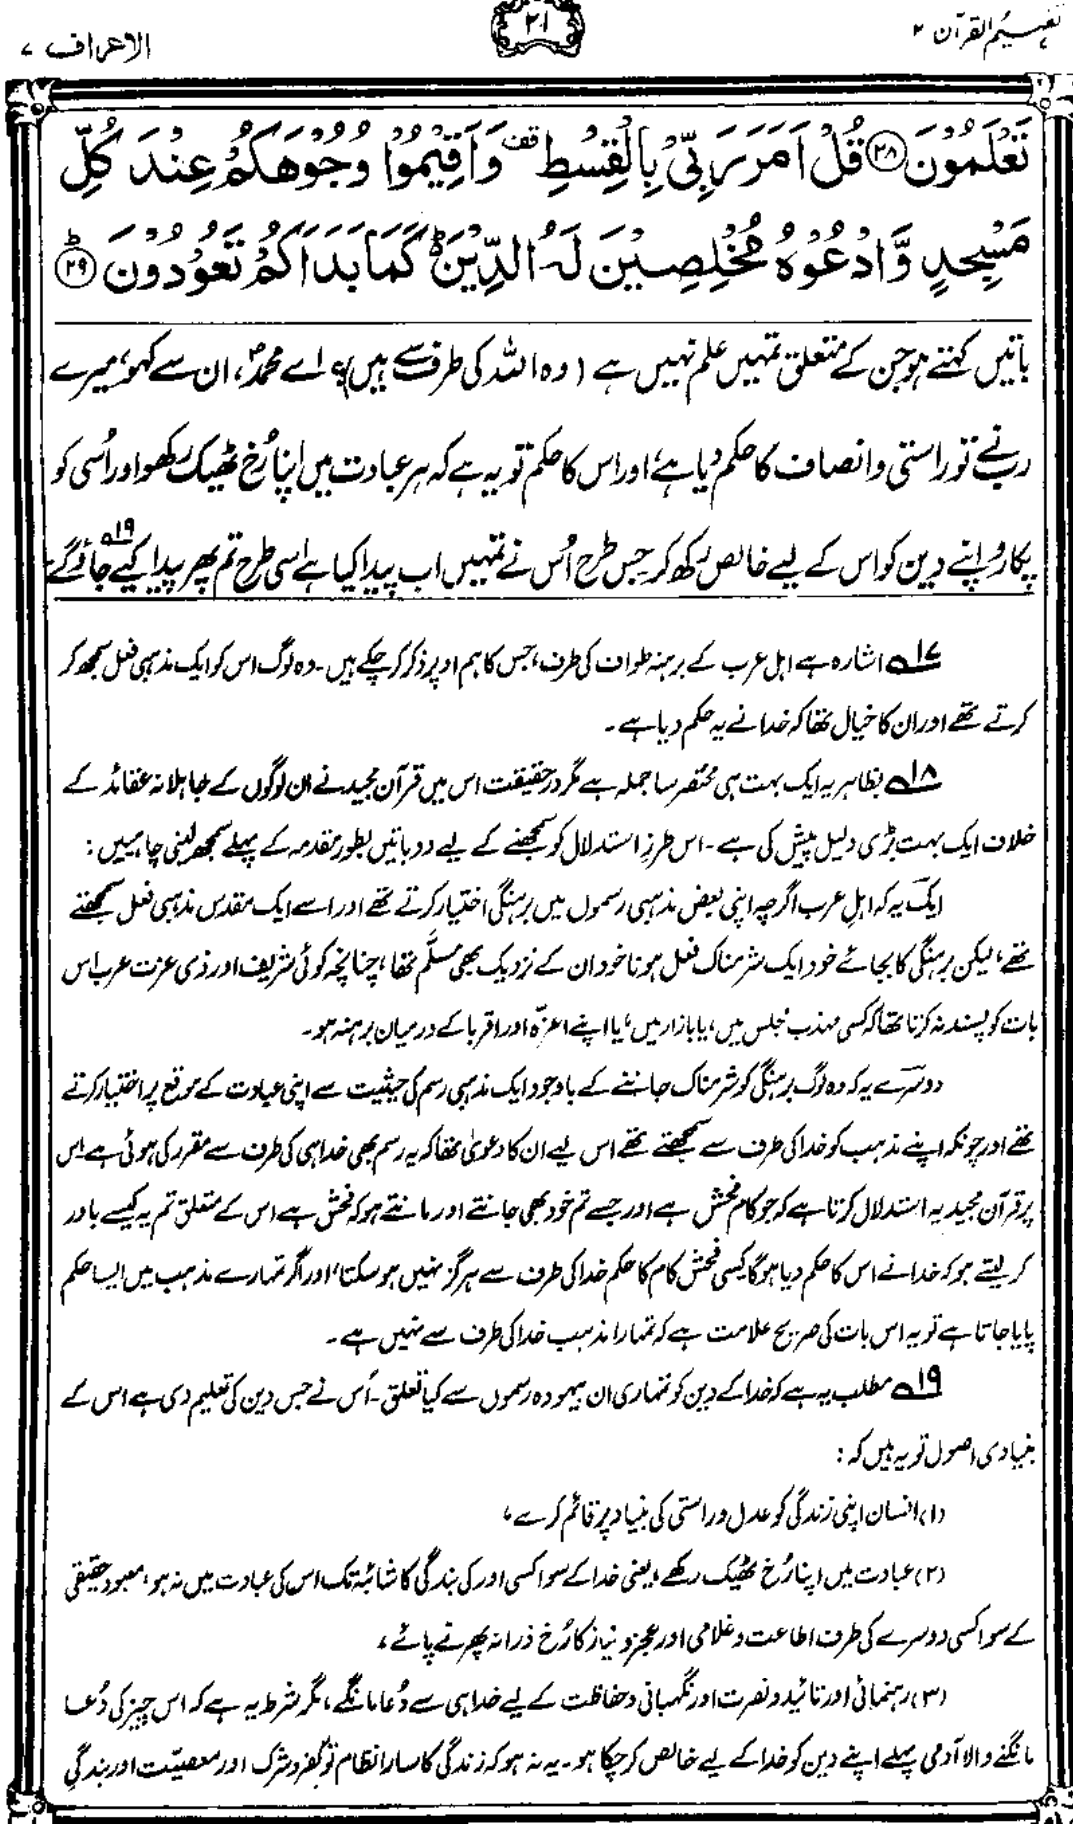 تفہیم القرآن ۲
۲۱
الاعراف ۷
تَعْلَمُوْنَ ﴿۲۸﴾ قُلْ اَمَرَ رَبِّیْ بِالْقِسْطِ ۫ وَاَقِیْمُوْا وُجُوْهَکُمْ عِنْدَ کُلِّ
مَسْجِدٍ وَّادْعُوْهُ مُخْلِصِیْنَ لَهُ الدِّیْنَ ۬ؕ کَمَا بَدَاَکُمْ تَعُوْدُوْنَ ﴿ؕ۲۹﴾
باتیں کہتے ہو جن کے متعلق تمہیں علم نہیں ہے (وہ اللہ کی طرف سے ہیں)؟ اے محمدؐ، ان سے کہو، میرے
رب نے تو راستی و انصاف کا حکم دیا ہے، اور اس کا حکم تو یہ ہے کہ ہر عبادت میں اپنا رُخ ٹھیک رکھو اور اُسی کو
پکارو اپنے دین کو اس کے لیے خالص رکھ کر۔ جس طرح اُس نے تمہیں اب پیدا کیا ہے اسی طرح تم پھر پیدا کیے جاؤ گے۱۹
۱۷ اشارہ ہے اہل عرب کے برہنہ طواف کی طرف، جس کا ہم اوپر ذکر کر چکے ہیں۔ وہ لوگ اس کو ایک مذہبی فعل سمجھ کر
کرتے تھے اور ان کا خیال تھا کہ خدا نے یہ حکم دیا ہے۔
۱۸ بظاہر یہ ایک بہت ہی مختصر سا جملہ ہے مگر درحقیقت اس میں قرآن مجید نے ان لوگوں کے جاہلانہ عقائد کے
خلاف ایک بہت بڑی دلیل پیش کی ہے۔ اس طرزِ استدلال کو سمجھنے کے لیے دو باتیں بطور مقدمہ کے پہلے سمجھ لینی چاہییں:
ایک یہ کہ اہلِ عرب اگرچہ اپنی بعض مذہبی رسموں میں برہنگی اختیار کرتے تھے اور اسے ایک مقدس مذہبی فعل سمجھتے
تھے، لیکن برہنگی کا بجائے خود ایک شرمناک فعل ہونا خود ان کے نزدیک بھی مسلَّم تھا، چنانچہ کوئی شریف اور ذی عزت عرب اس
بات کو پسند نہ کرتا تھا کہ کسی مہذب مجلس میں، یا بازار میں، یا اپنے اعزّہ اور اقربا کے درمیان برہنہ ہو۔
دوسرے یہ کہ وہ لوگ برہنگی کو شرمناک جاننے کے باوجود ایک مذہبی رسم کی حیثیت سے اپنی عبادت کے موقع پر اختیار کرتے
تھے اور چونکہ اپنے مذہب کو خدا کی طرف سے سمجھتے تھے اس لیے ان کا دعویٰ تھا کہ یہ رسم بھی خدا ہی کی طرف سے مقرر کی ہوئی ہے۔ اس
پر قرآن مجید یہ استدلال کرتا ہے کہ جو کام فحش ہے اور جسے تم خود بھی جانتے اور مانتے ہو کہ فحش ہے اس کے متعلق تم یہ کیسے باور
کر لیتے ہو کہ خدا نے اس کا حکم دیا ہو گا۔ کسی فحش کام کا حکم خدا کی طرف سے ہرگز نہیں ہو سکتا، اور اگر تمہارے مذہب میں ایسا حکم
پایا جاتا ہے تو یہ اس بات کی صریح علامت ہے کہ تمہارا مذہب خدا کی طرف سے نہیں ہے۔
۱۹ مطلب یہ ہے کہ خدا کے دین کو تمہاری ان بیہودہ رسموں سے کیا تعلق۔ اُس نے جس دین کی تعلیم دی ہے اس کے
بنیادی اصول تو یہ ہیں کہ:
(۱) انسان اپنی زندگی کو عدل و راستی کی بنیاد پر قائم کرے،
(۲) عبادت میں اپنا رُخ ٹھیک رکھے، یعنی خدا کے سوا کسی اور کی بندگی کا شائبہ تک اس کی عبادت میں نہ ہو، معبودِ حقیقی
کے سوا کسی دوسرے کی طرف اطاعت و غلامی اور عجز و نیاز کا رُخ ذرا نہ پھرنے پائے،
(۳) رہنمائی اور تائید و نصرت اور نگہبانی و حفاظت کے لیے خدا ہی سے دُعا مانگے، مگر شرط یہ ہے کہ اس چیز کی دُعا
مانگنے والا آدمی پہلے اپنے دین کو خدا کے لیے خالص کر چکا ہو۔ یہ نہ ہو کہ زندگی کا سارا نظام تو کفر و شرک اور معصیّت اور بندگیِ